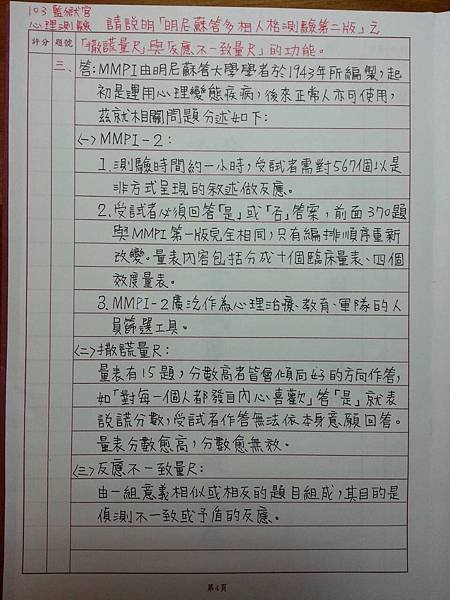 103 監獄官
心理測驗 請說明「明尼蘇答多相人格測驗第二版」之
評分 題號 「撒謊量尺」與「反應不一致量尺」的功能。
三、答:MMPI由明尼蘇答大學學者於1943年所編製,起
初是運用心理變態疾病,後來正常人亦可使用,
茲就相關問題分述如下:
(一)MMPI-2:
1.測驗時間約一小時,受試者需對567個以是
非方式呈現的敘述做反應。
2.受試者必須回答「是」或「否」答案,前面370題
與MMPI第一版完全相同,只有編排順序重新
改變。量表內容包括分成十個臨床量表、四個
效度量表。
3.MMPI-2廣泛作為心理治療、教育、軍隊的人
員篩選工具。
(二)撒謊量尺:
量表有15題,分數高者皆會傾向 的方向作答,
如「對每一個人都發自內心喜歡」答「是」就表
說謊分數,受試者作答無法依本身意願回答。
量表分數愈高,分數愈無效。
(三)反應不一致量尺:
由一組意義相似或相反的題目組成,其目的是
偵測不一致或予盾的反應。
第4頁